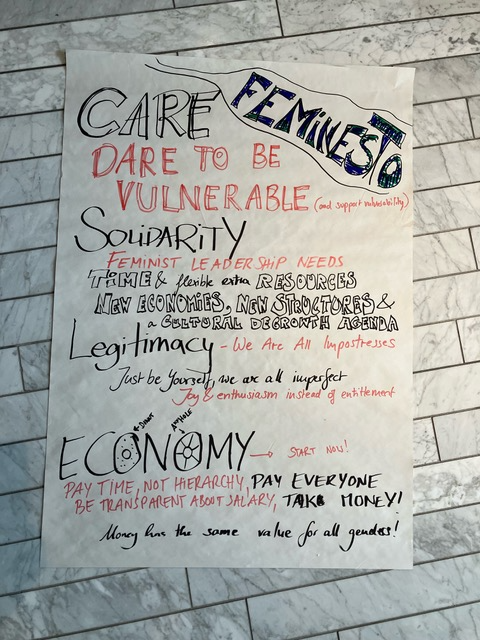 FEMINESTO
CARE
DARE TO BE
VULNERABLE (and support vulnerability)
SOLIDARITY
FEMINIST LEADERSHIP NEEDS
TIME & flexible extra RESOURCES
NEW ECONOMIES, NEW STRUCTURES &
a CULTURAL DEGROWTH AGENDA
Legitimacy - We Are All Impostresses
Just be yourself, we are all imperfect
Joy & enthusiasm instead of entitlement
ECONOMY → START NOW!
PAY TIME, NOT HIERARCHY, PAY EVERYONE
BE TRANSPARENT ABOUT SALARY, TAKE MONEY!
Money has the same value for all genders!